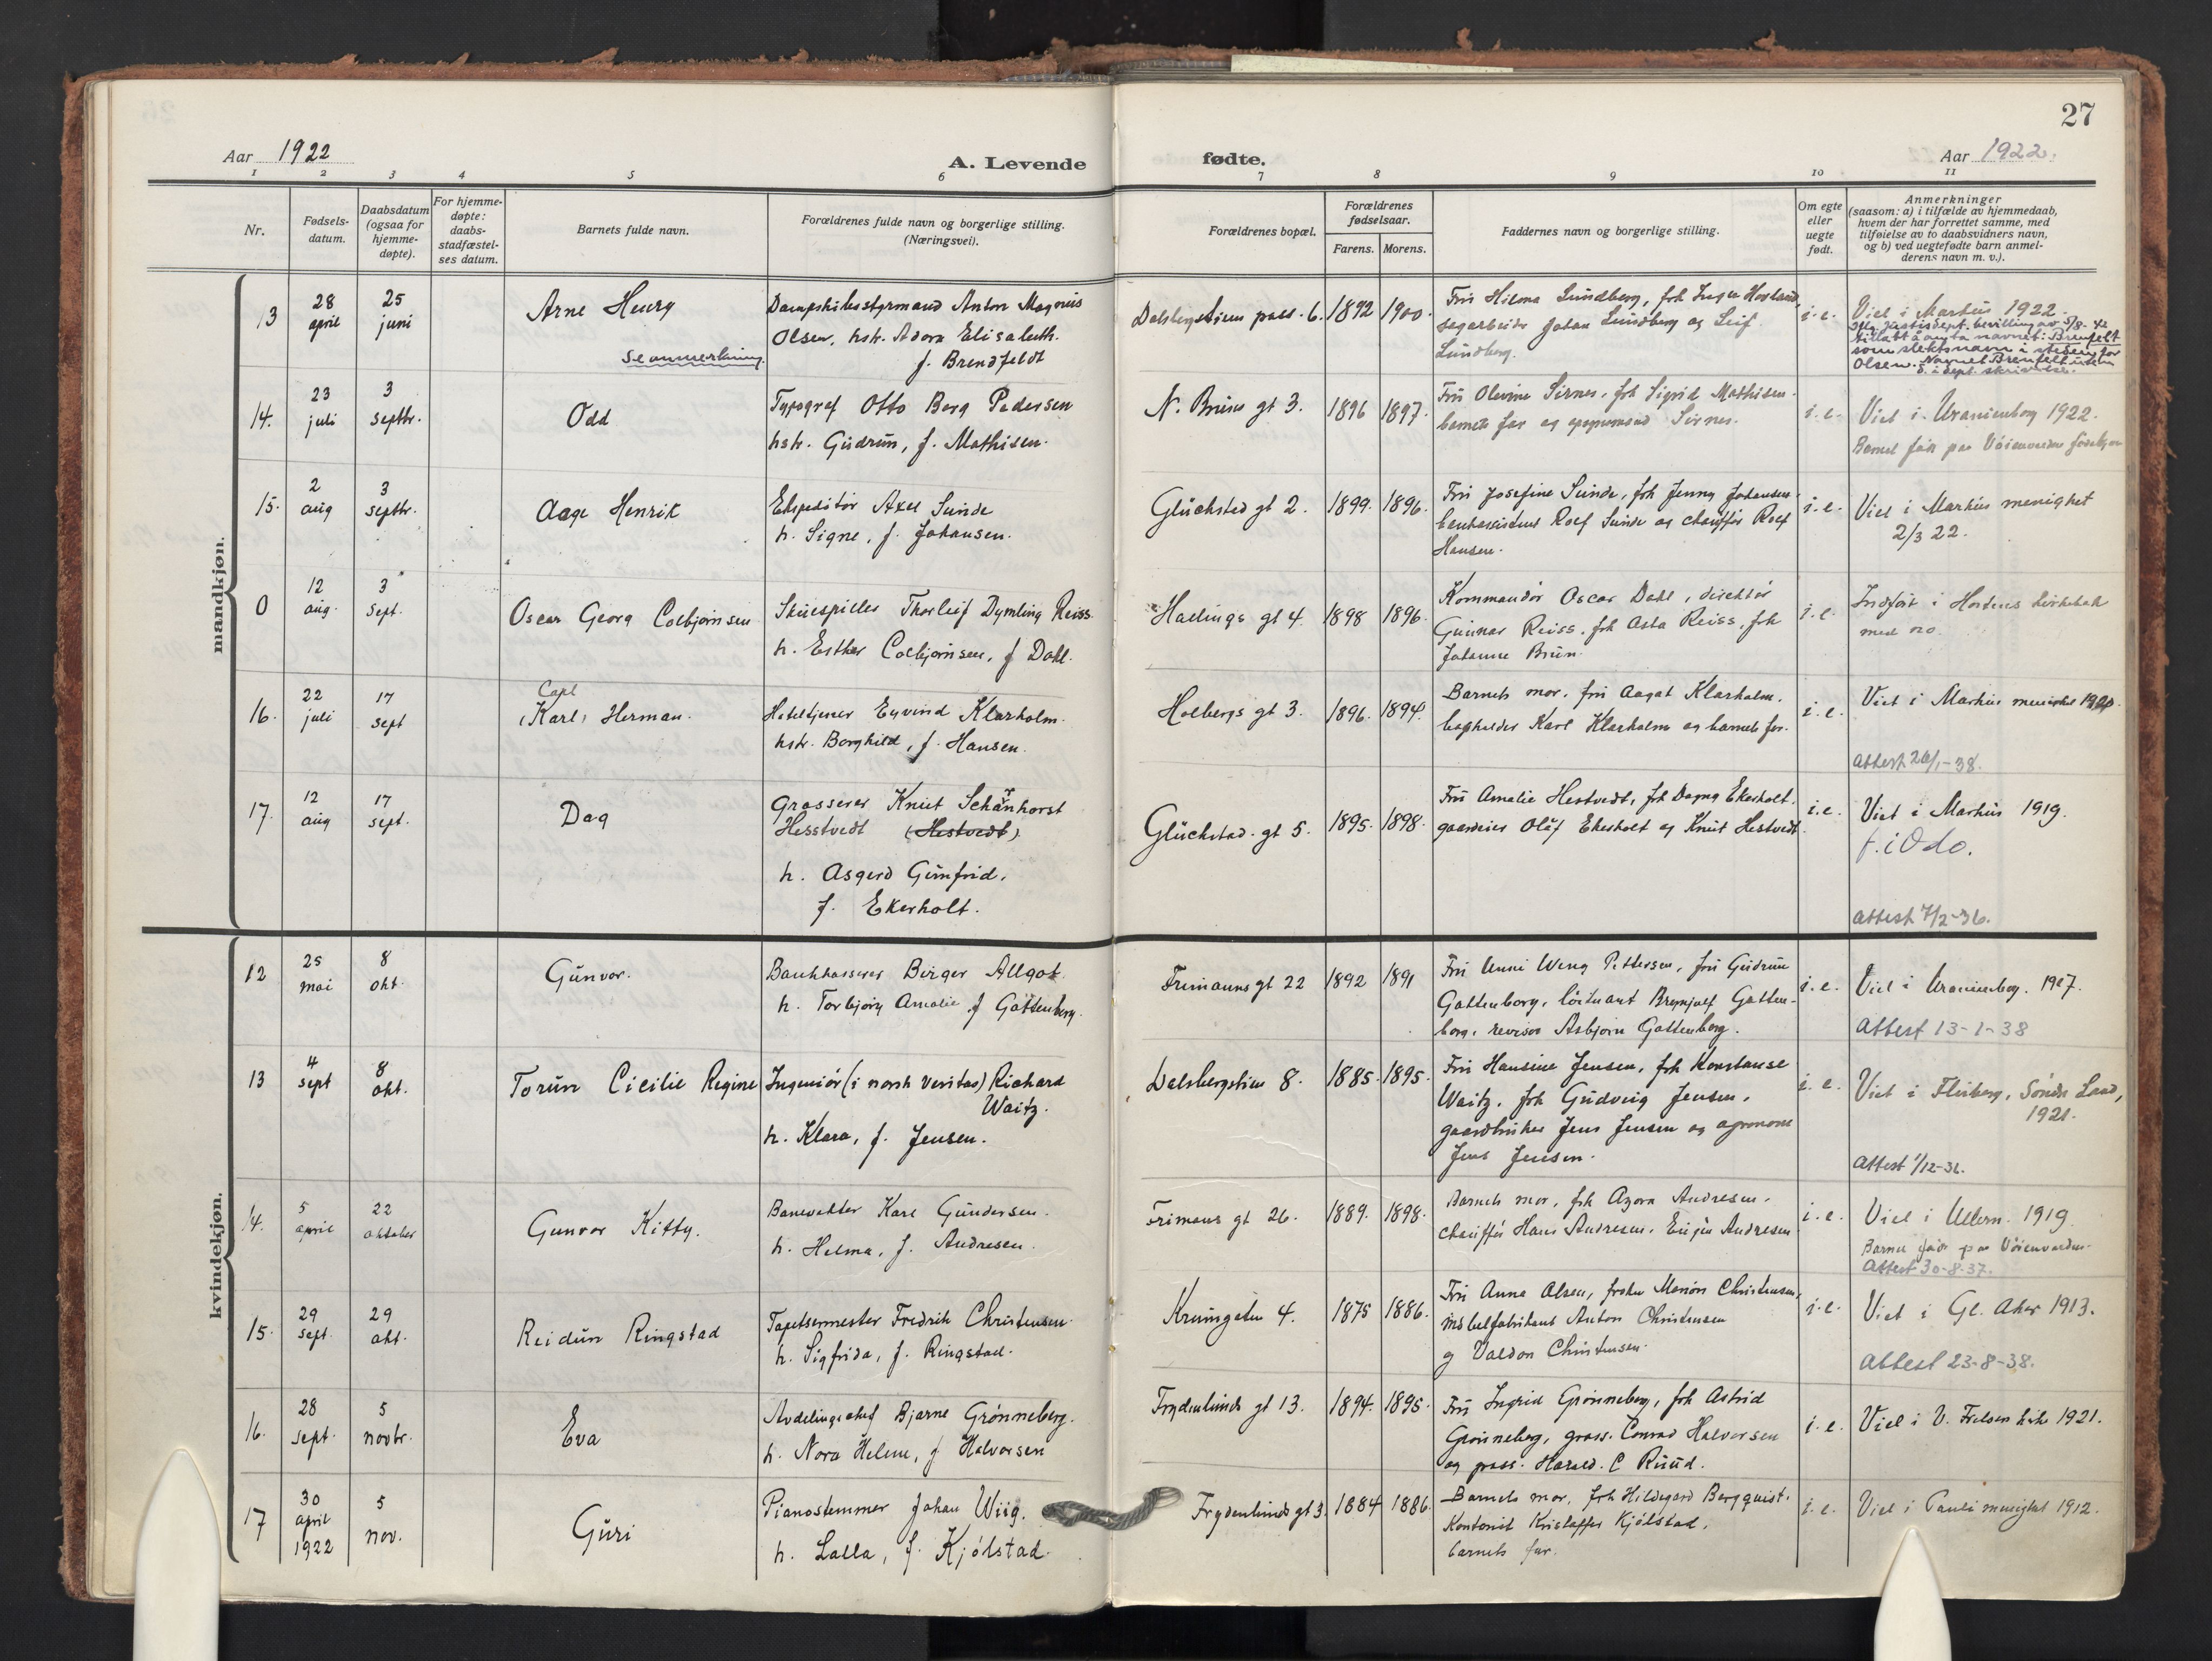 27
Aar 1922
A. Levende
fødte.
Aar 1922.
1 2 3 4 5 6 7 8 9 10 11
Nr.
Fødsels-
datum.
Daabsdatum
(ogsaa for
hjemme-
døpte).
For hjemme-
døpte:
daabs-
stadfæstel-
ses datum.
Barnets fulde navn.
Forældrenes fulde navn og borgerlige stilling.
(Næringsvei).
Forældrenes bopæl.
Forældrenes
fødselsaar.
Farens. Morens.
Faddernes navn og borgerlige stilling.
Om egte
eller
uegte
født.
Anmerkninger
(saasom: a) i tilfælde av hjemmedaab,
hvem der har forrettet samme, med
tilføielse av to daabsvidners navn,
og b) ved uegtefødte barn anmel-
derens navn m. v.).
mandkjøn.
13
28
april
25
juni
Arne Henry
Se anmerkning.
Dampskibsstyrmand Anton Magnus
Olsen, hstr. Adora Elisabeth.
f. Brendfeldt
Dalsbergstiens pass. 6.
1892
1900.
Fru Hilma Lundberg, frk Inger Hovland,
sagarbeider Johan Lundberg og Leif
Lundberg.
i. e.
Viet i Markus 1922.
Iflg. justisdept. bevilling av 5/8-42
tillatt å anta navnet: Brenfelt
som slektsnavn i steden for
Olsen. Navnet Brenfelt uten
d. i dept. skrivelse.
14.
23
juli
3
septbr.
Odd
Typograf Otto Berg Pedersen
hstr. Gudrun, f. Mathisen.
N. Bruns gt 3.
1896
1897.
Fru Olevine Sirnes, frk Sigrid Mathisen
barnets far og Sirnes.
i. e.
Viet i Uranienborg 1922.
Barnet født paa Vöienvolden
15.
2
aug
3
septbr.
Aage Henrik
Ekspeditör Axel Sunde
h. Signe, f. Johansen.
Glückstad gt 2.
1899.
1896.
Fru Josefine Sunde, frk Jenny Johansen
bankassistent Rolf Sunde og chauffør Rolf
Hansen.
i. e.
Viet i Markus menighet
2/3 22.
0
12
aug.
3
sept.
Oscar Georg Colbjørnsen
Skuespiller Thorleif Dymling Reiss.
h. Esther Colbjørnsen, f Dahl.
Hallings gt 4.
1898
1896.
Kommandör Oscar Dahl, direktör
Gunnar Reiss, frk Asta Reiss, frk
Johanne Bruun.
i. e.
Indført i Hortens kirkebok
med no.
16.
22
juli
17
sept
Carl
(Karl) Herman.
Hoteltjener Eyvind Klarholm.
hstr. Borghild, f. Hansen.
Holbergs gt 3.
1896.
1894.
Barnets mor, fru Aagot Klarholm,
bogholder Karl Klarholm og barnets far.
i. e.
Viet i Markus menighet 1920.
Attest 26/1-38.
17.
12
aug
17
sept.
Dag
Grosserer Knut Schanhorst
Hesstvedt (Hestvedt)
h. Asgerd Gunfrid,
f. Ekerholt.
Glückstad. gt 5.
1895.
1898.
Fru Amalie Hestvedt, frk Dagny Ekerholt,
gaardeier Oluf Ekerholt og Knut Hestvedt.
i. e.
Viet i Markus 1919.
f. i Oslo.
Attest 7/2-36.
kvindekjøn.
12
25
mai
8
okt.
Gunvor.
Bankkasserer Birger Allgot
h. Torbjørg Amalie, f Gottenborg.
Frimanns gt 22
1892
1891
Fru Unni Weng Pettersen, fru Gudrun
Gottenborg, löitnant Brynjulf Gotten-
borg, revisor Asbjørn Gottenborg.
i. e.
Viet i Uranienborg. 1917.
Attest 13-1-38
13
4
sept
8
okt.
Torun Cicilie Regine
Ingeniör (i norsk Veritas) Richard
Waitz.
h. Klara, f. Jensen.
Dalsbergstien 8.
1885.
1895.
Fru Hansine Jensen, frk Konstanse
Waitz, frk Gudveig Jensen,
gaardbruker Jens Jensen og agronom
Jens Jensen.
i. e.
Viet i Fluberg, Söndr Land,
1921.
Attest 1/12-36.
14.
5
april
22
oktober
Gunvor Kitty.
Banevakter Karl Gundersen.
h. Helma, f. Andresen.
Frimans gt 26.
1889.
1898.
Barnets mor, frk Agora Andresen,
chauffør Hans Andresen, Eugen Andresen
i. e.
Viet i Ullern. 1919.
Barnet født paa Vöienvolden.
Attest 30-8-37.
15.
29
sept.
29
okt.
Reidun Ringstad
Tapetsermester Fredrik Christensen.
h. Sigfrida, f. Ringstad.
Krumgaten 4.
1875
1886.
Fru Anna Olsen, frøken Marion Christensen,
möbelfabrikant Anton Christensen
og Valdon Christensen.
i. e.
Viet i Gl. Aker 1913.
Attest 23-8-38.
16.
28
sept.
5
novbr.
Eva
Avdelingschef Bjarne Grönneberg.
h. Nora Helene, f Halvorsen
Frydenlunds gt 13.
1894.
1895.
Fru Ingrid Grönneberg, frk Astrid
Grönneberg, gross. Conrad Halvorsen
og gross. Harald. C Ruud.
i. e.
Viet i V. Frelsers kirke 1921.
17
30
april
1922
5
nov.
Guri
Pianostemmer Johan Wiig.
h. Lalla, f. Kjölstad.
Frydenlunds gt 3.
1884
1886.
Barnets mor, frk Hildegard Bergquist,
Kontorist Kristoffer Kjölstad,
barnets far.
i. e.
Viet i Pauli menighet 1912.